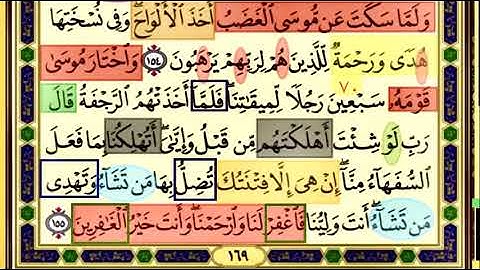 وَلَمَّا سَكَتَ عَن مُّوسَى ٱلْغَضَبُ أَخَذَ ٱلْأَلْوَاحَ ۖ وَفِى نُسْخَتِهَا
هُدًى وَرَحْمَةٌ لِّلَّذِينَ هُمْ لِرَبِّهِمْ يَرْهَبُونَ ١٥٤ وَٱخْتَارَ مُوسَىٰ
٧٠
قَوْمَهُۥ سَبْعِينَ رَجُلًا لِّمِيقَٰتِنَا ۖ فَلَمَّآ أَخَذَتْهُمُ ٱلرَّجْفَةُ قَالَ
رَبِّ لَوْ شِئْتَ أَهْلَكْتَهُم مِّن قَبْلُ وَإِيَّٰىَ ۖ أَتُهْلِكُنَا بِمَا فَعَلَ
ٱلسُّفَهَآءُ مِنَّآ ۖ إِنْ هِىَ إِلَّا فِتْنَتُكَ تُضِلُّ بِهَا مَن تَشَآءُ وَتَهْدِى
مَن تَشَآءُ ۖ أَنتَ وَلِيُّنَا فَٱغْفِرْ لَنَا وَٱرْحَمْنَا ۖ وَأَنتَ خَيْرُ ٱلْغَٰفِرِينَ ١٥٥
١٦٩